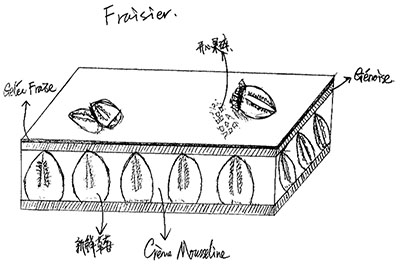 Fraisier.
开心果碎
Gelée Fraise
Génoise.
新鲜草莓
Crème Mousseline